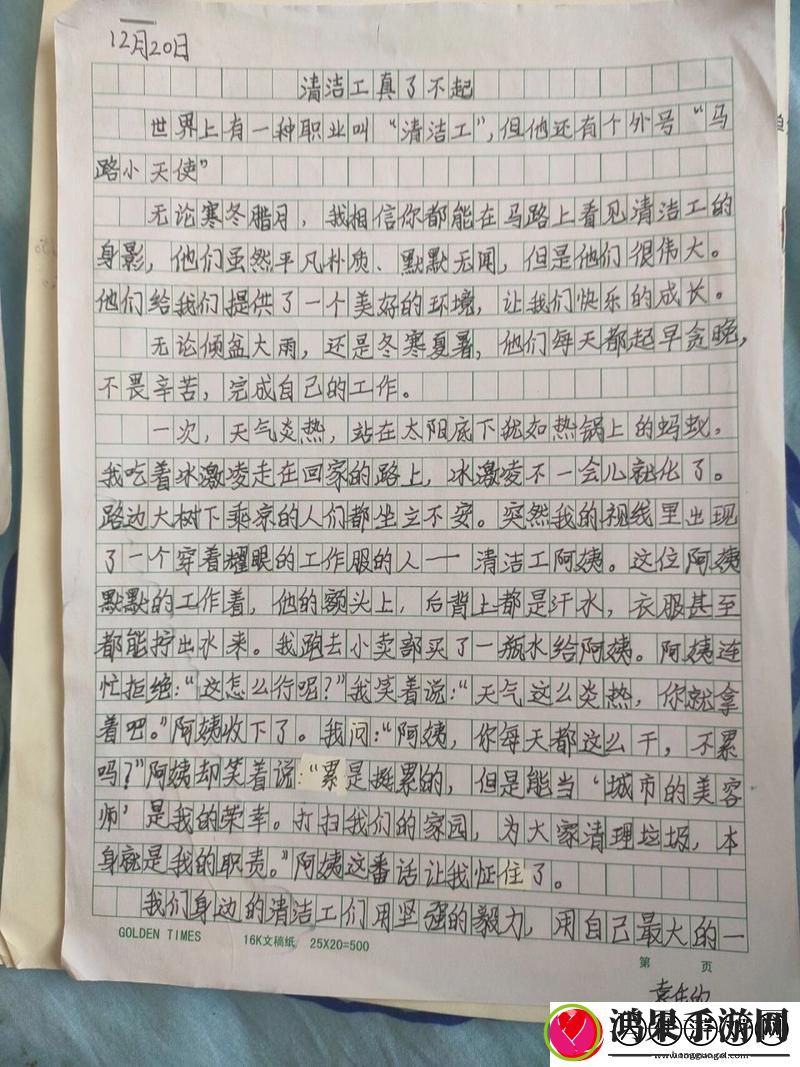 12月20日
清洁工真了不起
世界上有一种职业叫“清洁工”,但他还有个外号“马
路小天使”
无论寒冬腊月，我相信你都能在马路上看见清洁工的
身影，他们虽然平凡朴质、默默无闻，但是他们很伟大。
他们给我们提供了一个美好的环境，让我们快乐的成长。
无论倾盆大雨，还是冬寒夏暑，他们每天都起早贪晚，
不畏辛苦，完成自己的工作。
一次，天气炎热，站在太阳底下犹如热锅上的蚂蚁，
我吃着冰激凌走在回家的路上，冰激凌不一会儿就化了。
路边大树下乘凉的人们都坐立不安。突然我的视线里出现
了一个穿着耀眼的工作服的人一一清洁工阿姨。这位阿姨
默默的工作着，他的额头上，后背上都是汗水，衣服甚至
都能拧出水来。我跑去小卖部买了一瓶水给阿姨。阿姨连
忙拒绝：“这怎么行呢？”我笑着说：“天气这么炎热，你就拿
着吧。”阿姨收下了。我问：“阿姨，你每天都这么干，不累
吗？”阿姨却笑着说：“累是挺累的，但是能当‘城市的美容
师’是我的荣幸。打扫我们的家园，为大家清理垃圾，本
身就是我的职责。”阿姨这番话让我怔住了。
我们身边的清洁工们用坚强的毅力，用自己最大的一
GOLDEN TIMES 16K文稿纸 25X20=500
第 页
鸿果手游网
www.hongguogol.com